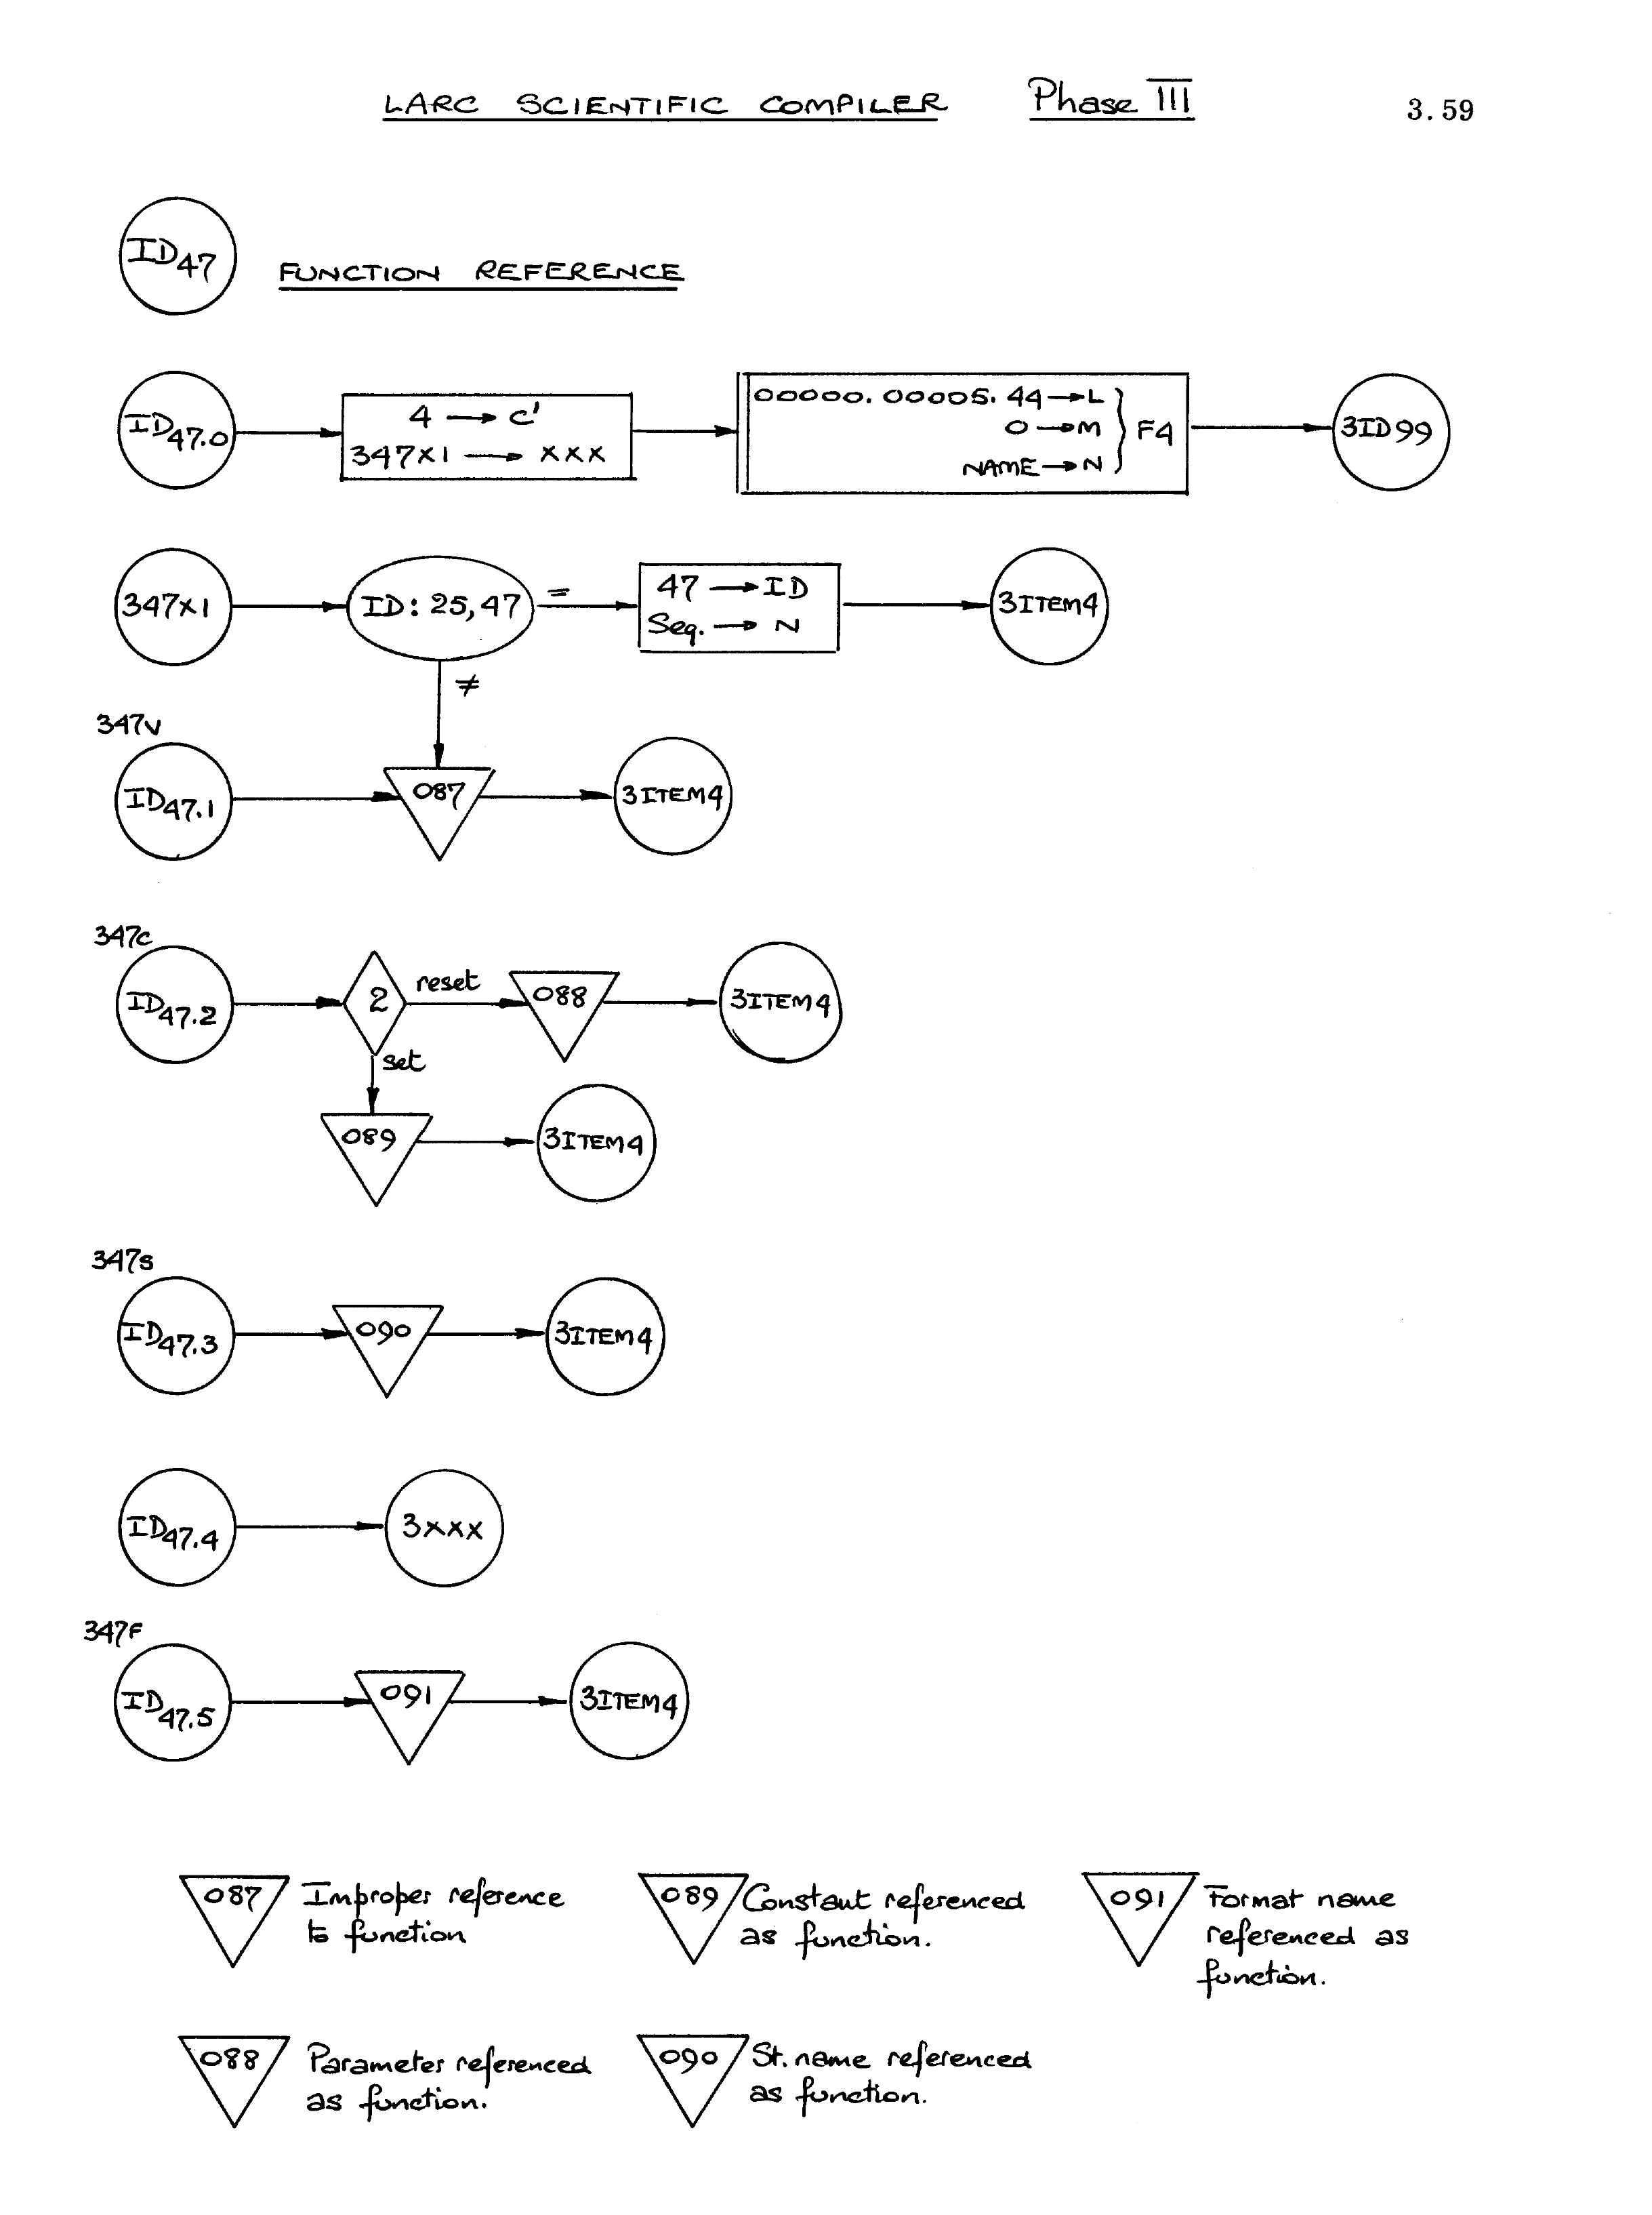 LARC SCIENTIFIC COMPILER Phase III 3.59
ID47
FUNCTION REFERENCE
ID47.0
4 → C'
347X1 → XXX
00000. 00005. 44 → L
0 → M
NAME → N
F4
3ID99
347X1
ID: 25, 47
=
47 → ID
Seq. → N
3ITEM4
≠
347V
ID47.1
087
3ITEM4
347C
ID47.2
2
reset
088
3ITEM4
set
089
3ITEM4
347S
ID47.3
090
3ITEM4
ID47.4
3XXX
347F
ID47.5
091
3ITEM4
087 Improper reference
to function
089 Constant referenced
as function.
091 Format name
referenced as
function.
088 Parameter referenced
as function.
090 St. name referenced
as function.